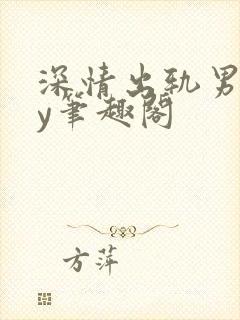 深情出轨男
y笔趣阁
方萍